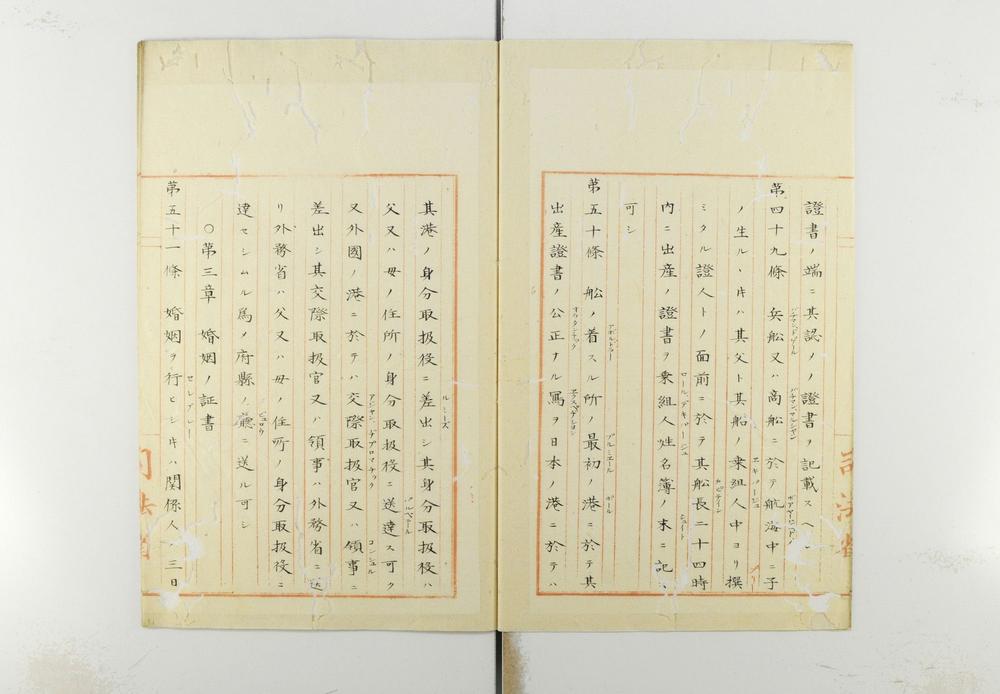 證書ノ端ニ其認メノ證書ヲ記載スヘ
第四十九條 兵船又ハ商船ニ於テ航海中ニ子
ノ生ルヽ片ハ其父ト其船ノ乗組人中ヨリ撰
ミタル證人トノ面前ニ於テ其舩長二十四時
内ニ出産ノ證書ヲ乗組人姓名簿ノ末ニ記ス
可シ
第五十條 舩ノ着スル所ノ最初ノ港ニ於テ其
出産證書ノ公正ナル寫ヲ日本ノ港ニ於テハ
其港ノ身分取扱役ニ差出シ其身分取扱役ハ
父又ハ母ノ住所ノ身分取扱役ニ送達ス可ク
又外國ノ港ニ於テハ交際取扱官又ハ領事ニ
差出シ其交際取扱官又ハ領事ハ外務省ニ送
リ外務省ハ父又ハ母ノ住所ノ身分取扱役ニ
達セシムル為メ府縣ノ廳ニ送ル可シ
〇第三章 婚姻ノ証書
第五十一條 婚姻ヲ行ヒシ片ハ関係人ノ三日
司法省